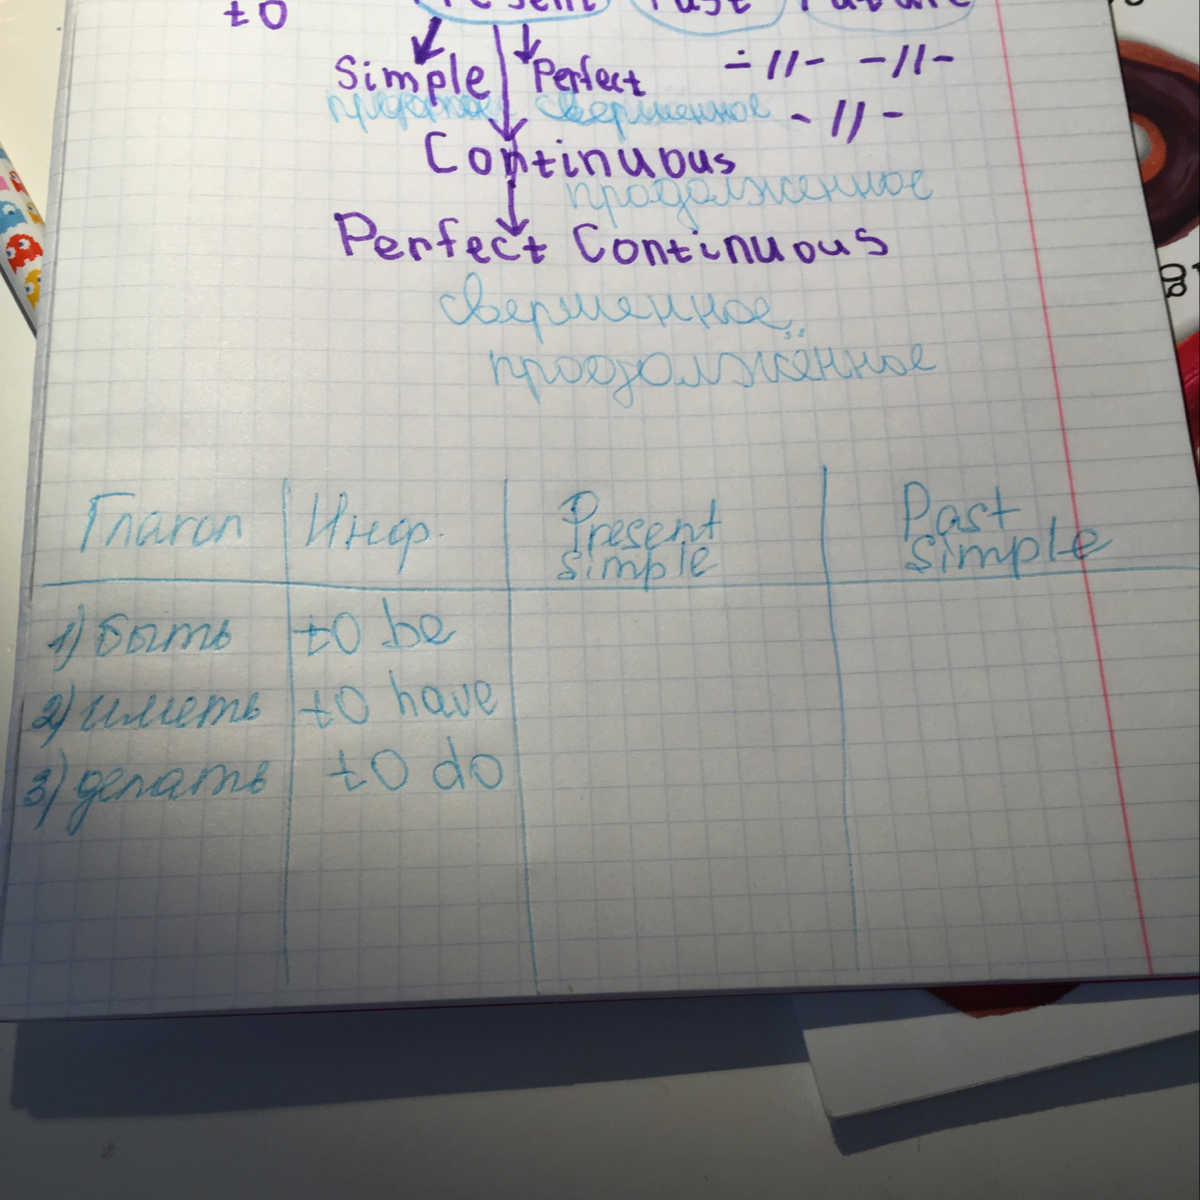 to
Simple Perfect ÷ // - - // -
свершенное - // -
Continuous
продолженное
Perfect Continuous
свершенное,
продолжённое
Глагол Инф. Present simple Past simple
1) быть to be
2) иметь to have
3) делать to do